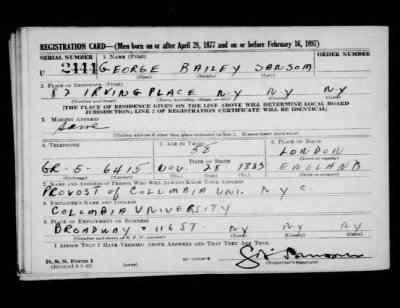 REGISTRATION CARD—(Men born on or after April 28, 1877 and on or before February 16, 1897)
SERIAL NUMBER 1. NAME (Print) ORDER NUMBER
U 2444 GEORGE BAILEY SANSOM
(First) (Middle) (Last)
2. PLACE OF RESIDENCE (Print)
87 IRVING PLACE N.Y N.Y N.Y
(Number and street) (Town, township, village, or city) (County) (State)
[THE PLACE OF RESIDENCE GIVEN ON THE LINE ABOVE WILL DETERMINE LOCAL BOARD
JURISDICTION; LINE 2 OF REGISTRATION CERTIFICATE WILL BE IDENTICAL]
3. MAILING ADDRESS
Same
[Mailing address if other than place indicated on line 2. If same insert word same]
4. TELEPHONE 5. AGE IN YEARS 6. PLACE OF BIRTH
58 LONDON
DATE OF BIRTH
GR-5-6415 NOV. 28 1883 ENGLAND
7. NAME AND ADDRESS OF PERSON WHO WILL ALWAYS KNOW YOUR ADDRESS
PROVOST OF COLUMBIA UNI. N Y C.
8. EMPLOYER'S NAME AND ADDRESS
COLUMBIA UNIVERSITY
9. PLACE OF EMPLOYMENT OR BUSINESS
BROADWAY + 116 ST. NY NY NY
(Number and street or R. F. D. number) (Town) (County) (State)
I AFFIRM THAT I HAVE VERIFIED ABOVE ANSWERS AND THAT THEY ARE TRUE.
D. S. S. Form 1
(Revised 4-1-42) (Registrant's signature)